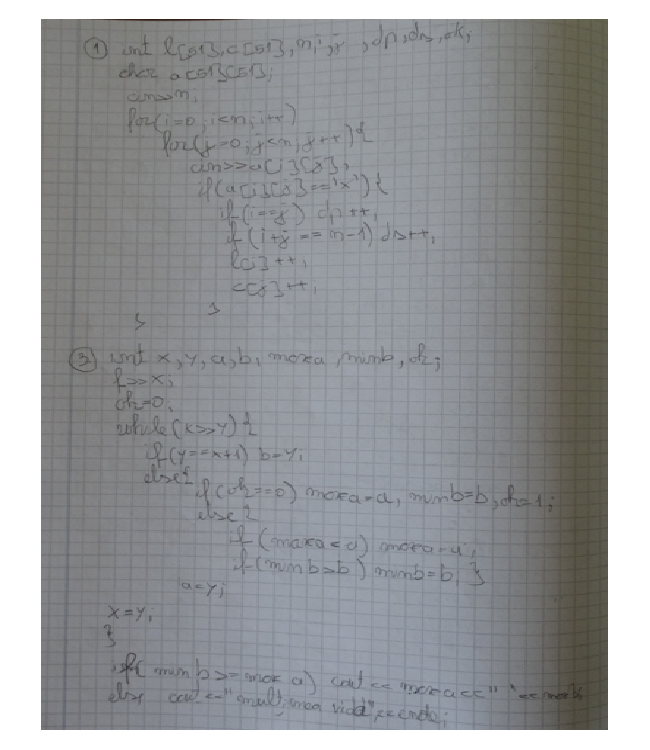 ① int l[51], c[51], n, i, j, dp, ds, ok;
char a[51][51];
cin>>n;
for(i=0; i<n; i++)
for(j=0; j<n; j++){
cin>>a[i][j];
if(a[i][j]=='x'){
if(i==j) dp++;
if(i+j==n-1) ds++;
l[i]++;
c[j]++;
}
}
③ int x, y, a, b, maxa, minb, ok;
f>>x;
ok=0;
while(x>>y){
if(y==x+1) b=y;
else{
if(ok==0) maxa=a, minb=b, ok=1;
else{
if(maxa<a) maxa=a;
if(minb>b) minb=b; }
a=y;
x=y;
}
if(minb>=maxa) cout<<maxa<<" "<<minb
else cout<<"multimea vida"<<endl;